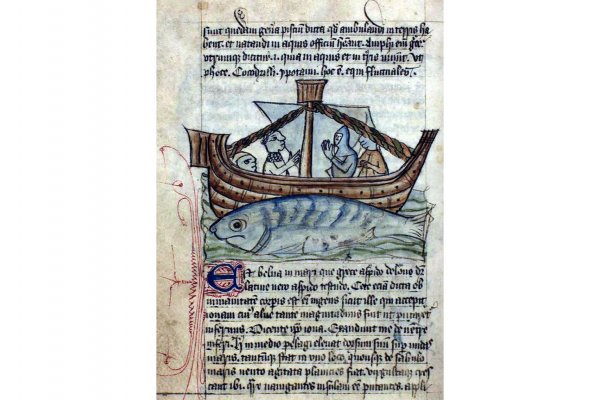 sunt quedam gena pisciũ dicta qđ ambulandi in terris ha
bent. et natandi in aquis officiũ hẽant. Amphi em̃ 
dicitur. i. qua in aquis et in tris uiuũt. Vt
phoce. Cocodrilli. ypotami. hoc ẽ. equi fluctuales.
Est belua in mari que grece aspido delone dr̃
latine uero aspido testudo. Cete eciã dicta ob
inmanitatẽ corpis est eñ ingens sicut ille qui excepit
ionam cuiꝰ aluꝰ tante magnitudinis fuit ut putaret
infernus. Dicente ip̃o iona. Exaudiuit me de uẽtre
inferi. H in medio pelagi eleuat dorsum suũ sup undas
maris. stat in uno loco. quousque de sabulo
maris uento agitata planicies fiat. cres
cant ibi. nauigantes insulam eẽ putantes. appli